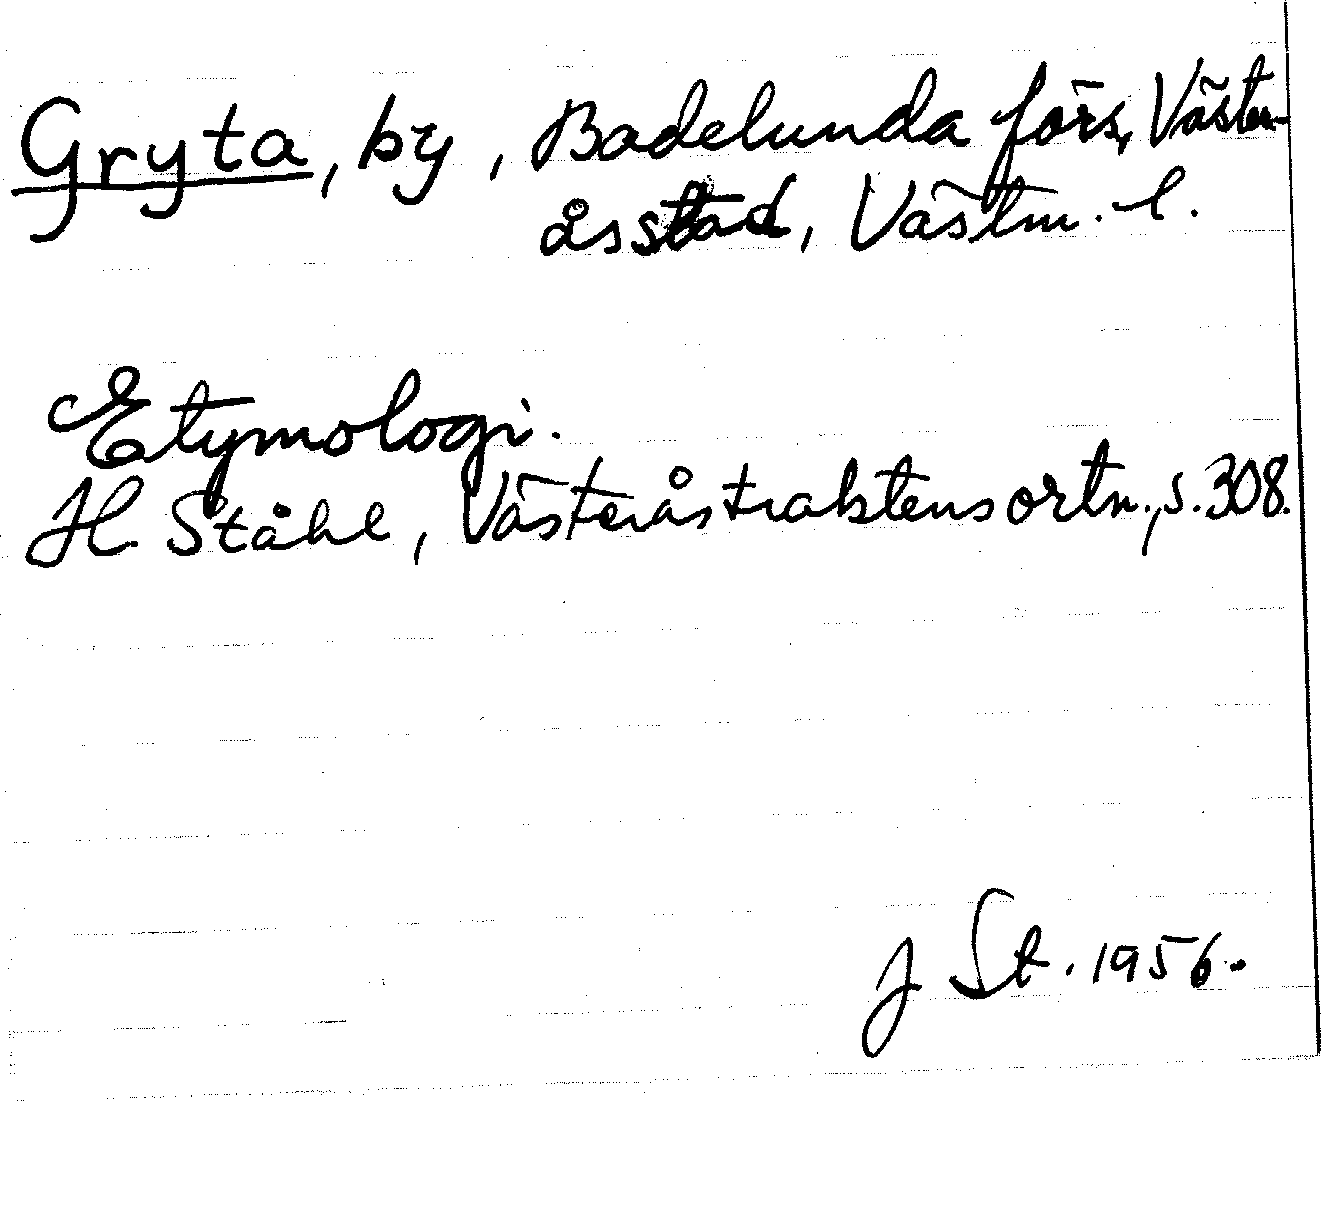 Gryta, by, Badelunda förs, Väster-
åsstad, Västm. l.
Etymologi.
H. Ståhl, Västeråstraktens ortn., s. 308.
J St. 1956.